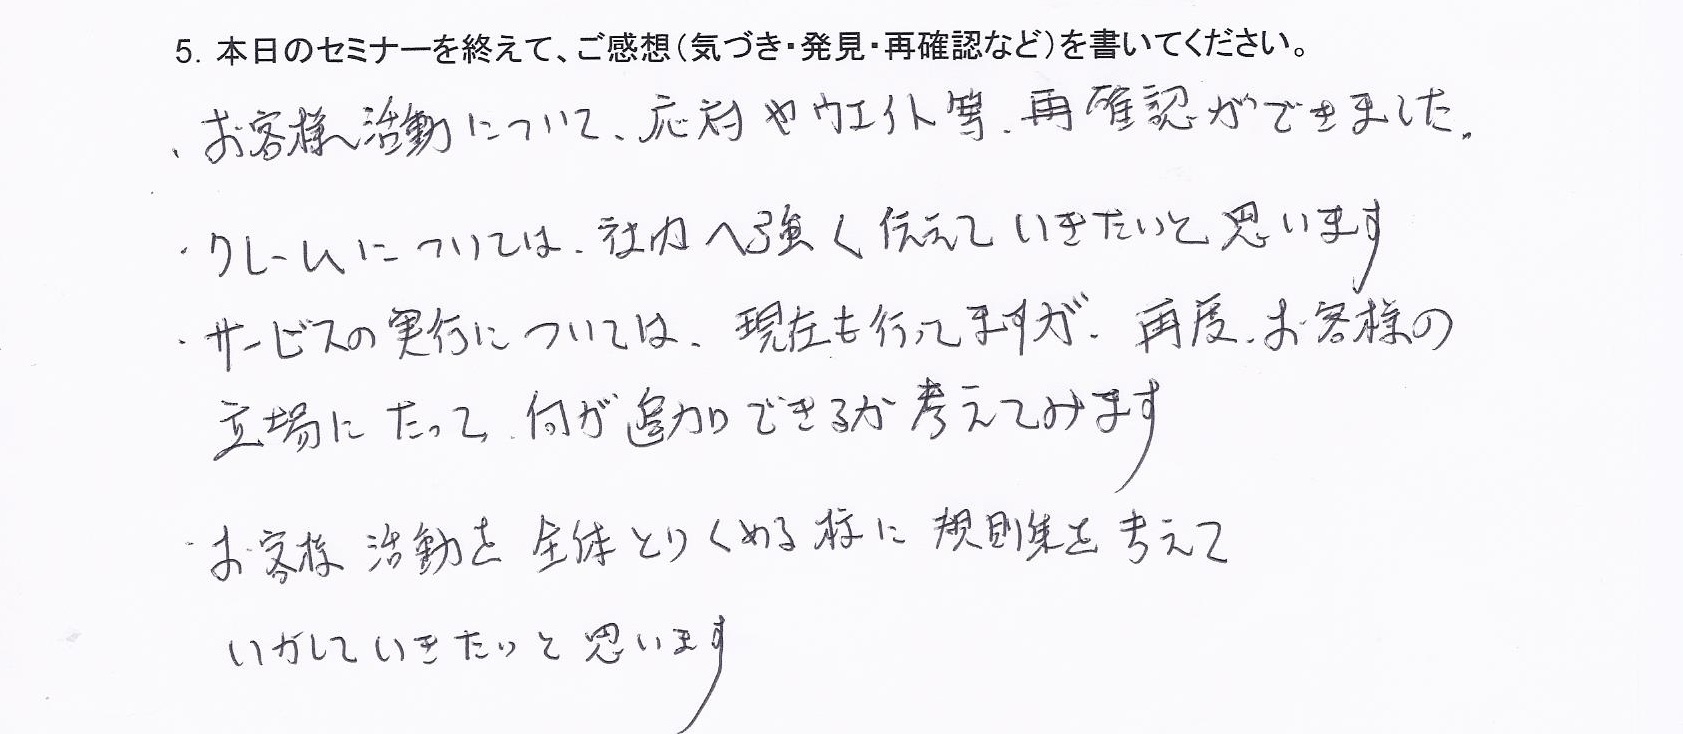 5. 本日のセミナーを終えて、ご感想(気づき・発見・再確認など)を書いてください。
、お客様へ活動について、応対やウエイト等、再確認ができました。
・クレームについては、社内へ強く伝えていきたいと思います
・サービスの実行については、現在も行ってますが、再度、お客様の
立場にたって、何が追加できるか考えてみます
・お客様活動を全体とりくめる様に規則集を考えて
いかしていきたいと思います